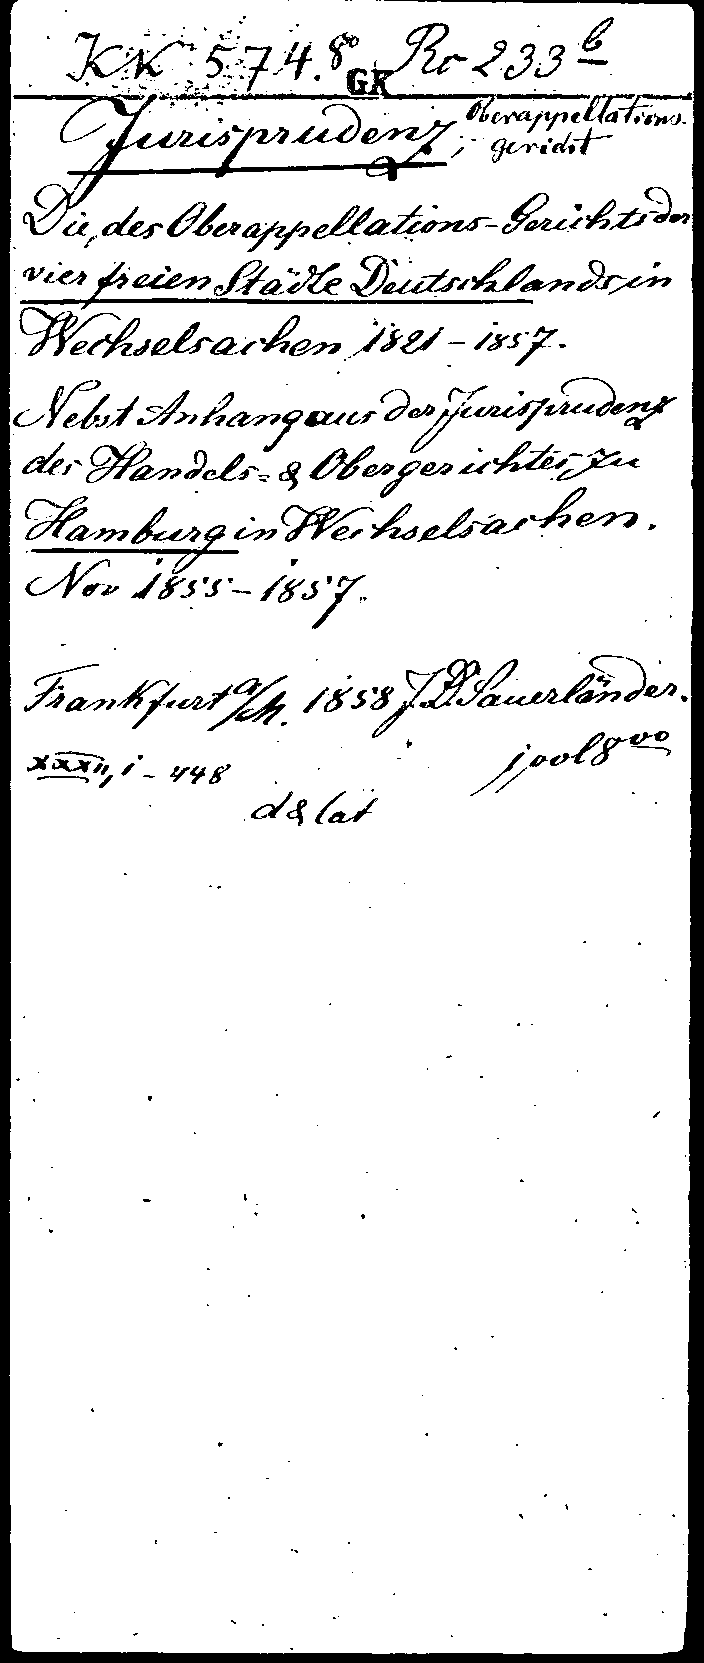 KK 574.8° Rc 233 b
GK
Jurisprudenz, Oberappellations-
gericht
Die, des Oberappellations-Gerichts der
vier freien Städte Deutschlands, in
Wechselsachen 1821-1857.
Nebst Anhang aus der Jurisprudenz
des Handels- & Obergerichtes, zu
Hamburg in Wechselsachen.
Nov 1855-1857.
Frankfurt a/M. 1858 J.D. Sauerländer.
XXXII, 1-448 1 vol 8vo
d & lat